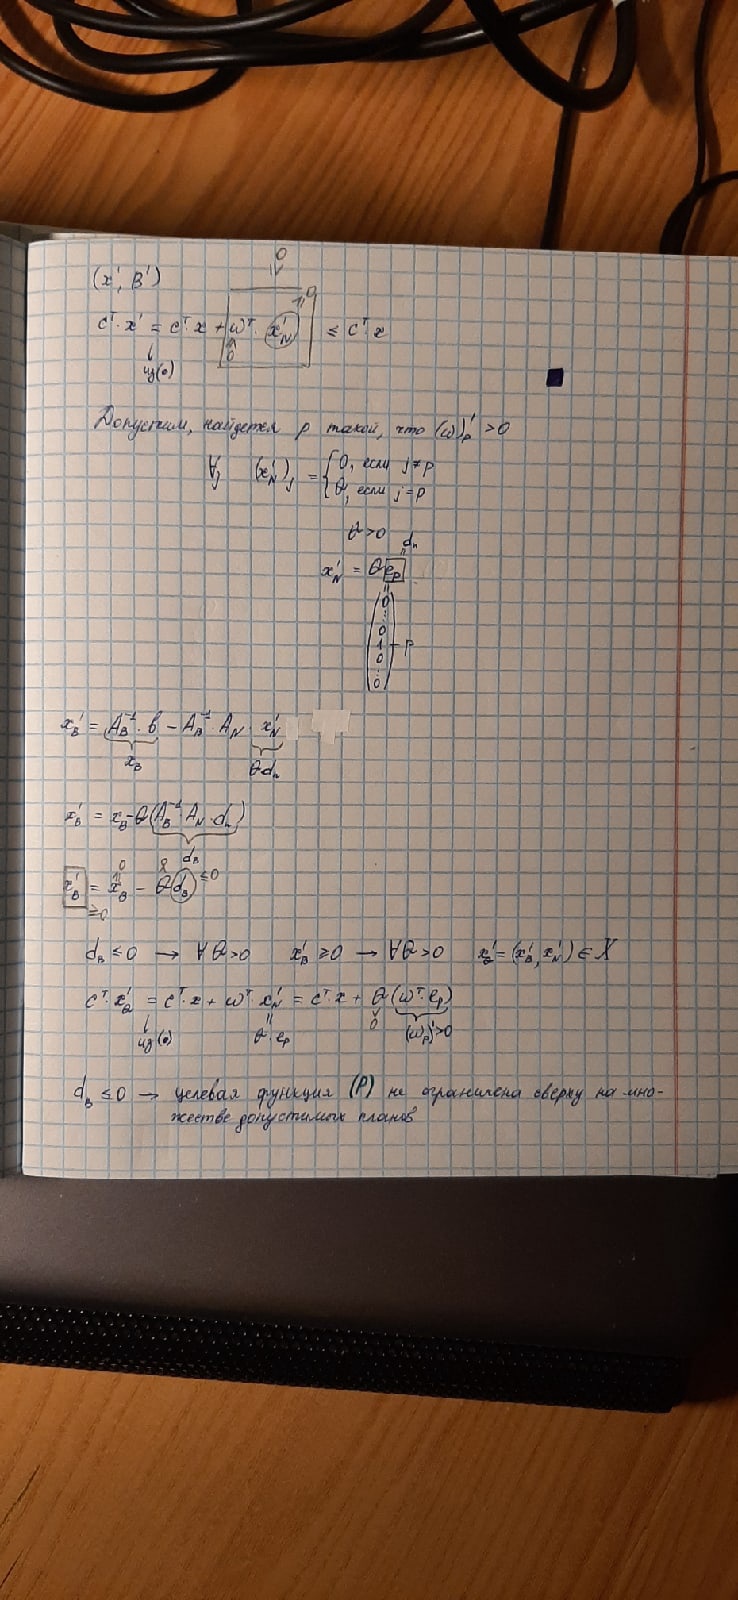 (x', B')
0
≥0
cᵀ·x' = cᵀ·x + ωᵀ· x'_N ≤ cᵀ·x
из(0) 0
Допустим, найдется p такой, что (ω)'_p > 0
∀j (x'_N)_j = { 0, если j≠p
θ, если j=p
θ > 0
d_n
x'_N = θ e_p
(0 ... 0 1 0 ... 0) – p
x'_B = A_B⁻¹·b − A_B⁻¹·A_N · x'_N
x_B θd_n
x'_B = x_B − θ(A_B⁻¹·A_N·d_n)
d_B
x'_B = x_B − θ d_B ≤0
≥0
d_B ≤ 0 → ∀θ>0 x'_B ≥ 0 → ∀θ>0 x'_θ = (x'_B, x'_N) ∈ X
cᵀ·x'_θ = cᵀ·x + ωᵀ·x'_N = cᵀ·x + θ(ωᵀ·e_p)
из(0) θ·e_p 0 (ω_p)'>0
d_B ≤ 0 → целевая функция (P) не ограничена сверху на мно-
жестве допустимых планов